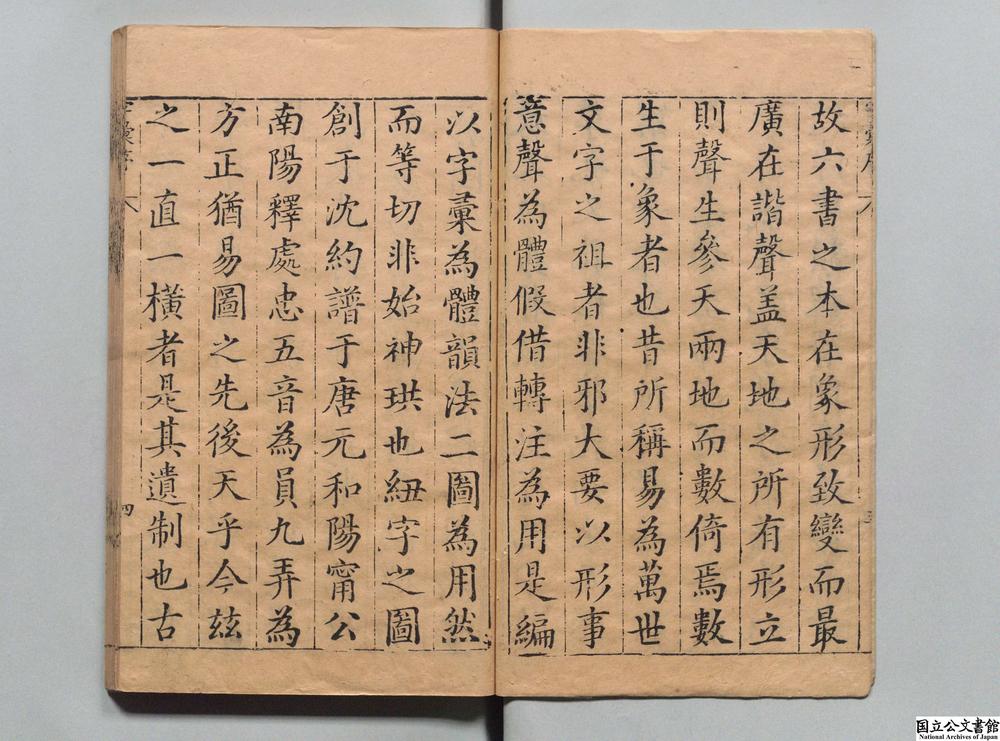 故六書之本在象形致變而最
廣在諧聲盖天地之所有形立
則聲生參天兩地而數倚焉數
生于象者也昔所稱易為萬世
文字之祖者非邪大要以形事
意聲為體假借轉注為用是編
以字彙為體韻法二圖為用然
而等切非始神珙也紐字之圖
創于沈約譜于唐元和陽甯公
南陽釋處忠五音為員九弄為
方正猶易圖之先後天乎今玆
之一直一橫者是其遺制也古
四
国立公文書館
National Archives of Japan